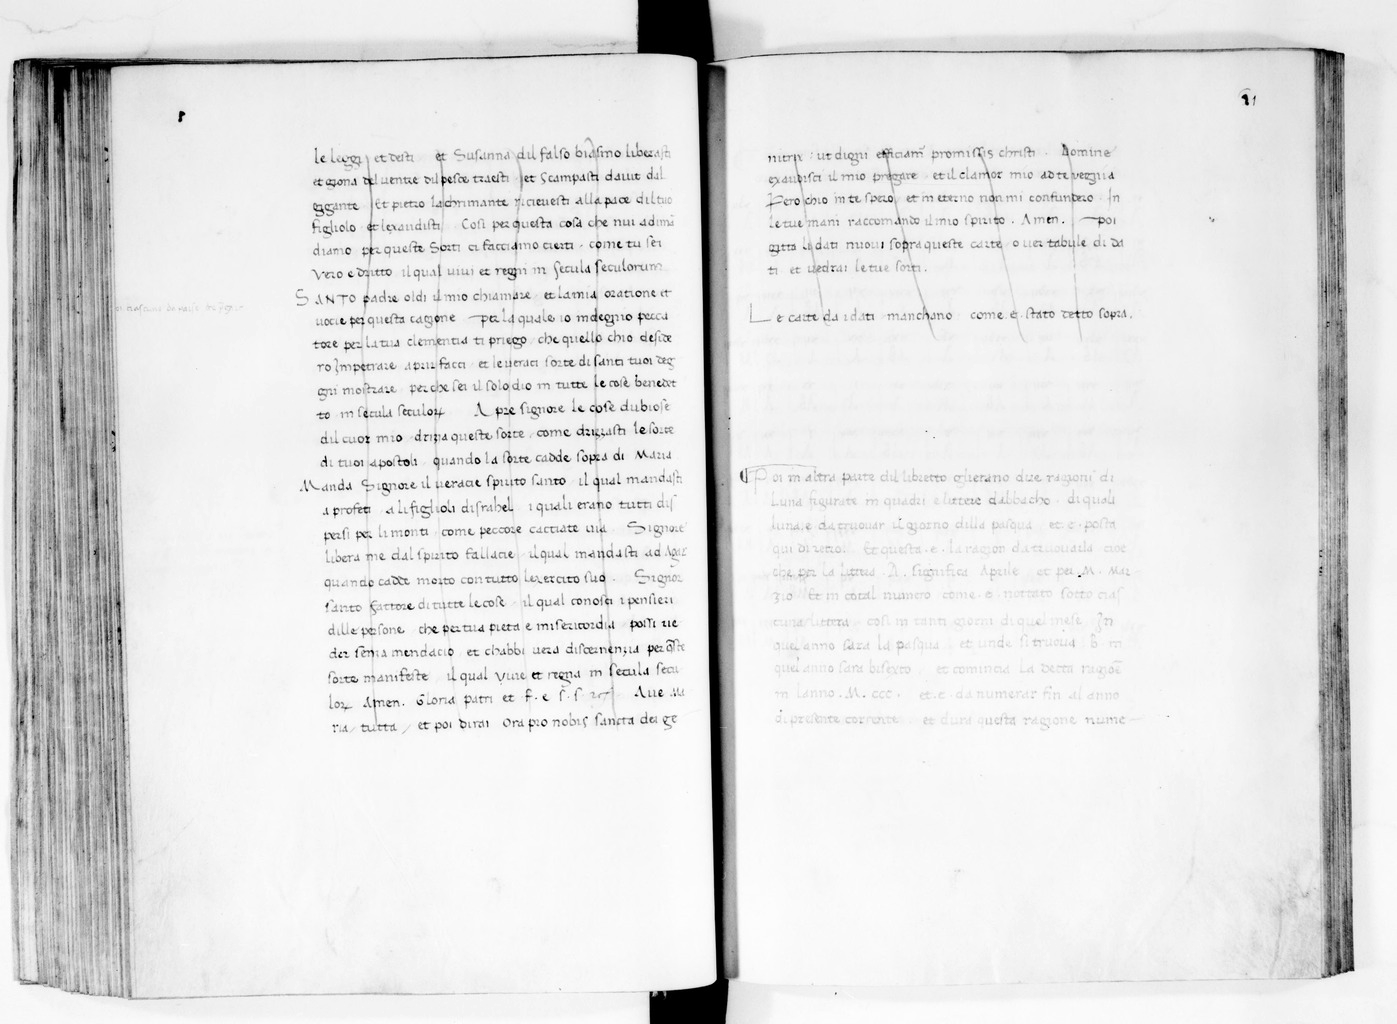 le leggi et desti et Susanna dil falso biasmo liberasti
et giona del ventre dil pesce traesti et scampasti davit dal
gigante Et pietro lachrimante ricievesti alla pace dil tuo
figliolo et lexaudisti Cosi per questa cosa che nui adima
diamo per queste Sorti ci facciamo cierti come tu sei
vero e dritto il qual vivi et regni in secula seculorum
SANTO padre oldi il mio chiamare et la mia oratione et
vocie per questa cagione per la quale io indegnio pecca
tore per la tua clementia ti priego che quello chio deside
ro Impetrare aprir facci et le veraci sorte di santi tuoi deg
gni mostrare perche sei il solo dio in tutte le cose benedet
to in secula seculoꝝ Apre signore le cose dubiose
dil cuor mio driza queste sorte come drizzasti le sorte
di tuoi apostoli quando la sorte cadde sopra di Maria
Manda Signore il veracie spirito santo il qual mandasti
a profeti a li figlioli disrahel i quali erano tutti dis
persi per li monti come peccore cacciate via Signore
libera me dal spirito fallacie il qual mandasti ad Agar
quando cadde morto con tutto lexercito suo . Signor
santo fattore di tutte le cose il qual conosci i pensieri
dille persone che per tua pieta e misericordia possi rie
der senza mendacio et chabbi vera discernenzia per q̄ste
sorte manifeste il qual vive et regna in secula secu
loꝝ Amen. Gloria patri et f. e s. s. Ave Ma
ria tutta / et poi dirai Ora pro nobis sancta dei ge
21
nitrix : ut digni efficiam̄ promissis christi . Domine
exaudisci il mio pregare et il clamor mio ad te vegnia
Pero chio in te spero et in eterno non mi confundero In
le tue mani raccomando il mio spirito . Amen . poi
gitta li dati nuovi sopra queste carte o ver tabule di da
ti et vedrai le tue sorti .
Le carte da i dati manchano come . e . stato detto sopra .
Poi in altra parte dil libretto glierano due ragioni di
Luna figurate in quadri e littere dabbacho di quali
luna . e da truovar il giorno dilla pasqua et . e . posta
qui di retro Et questa . e . la ragion da truovarla cioe
che per la littera . A . significa Aprile et per . M . Mar
zio Et in cotal numero come . e . nottato sotto cias
cuna littera cosi in tanti giorni di quel mese In
quel anno sara la pasqua et unde si truova B in
quel anno sara bisexto et comincia la detta ragiōe
in lanno . M . ccc . et . e . da numerar fin al anno
di presente corrente et dura questa ragione nume